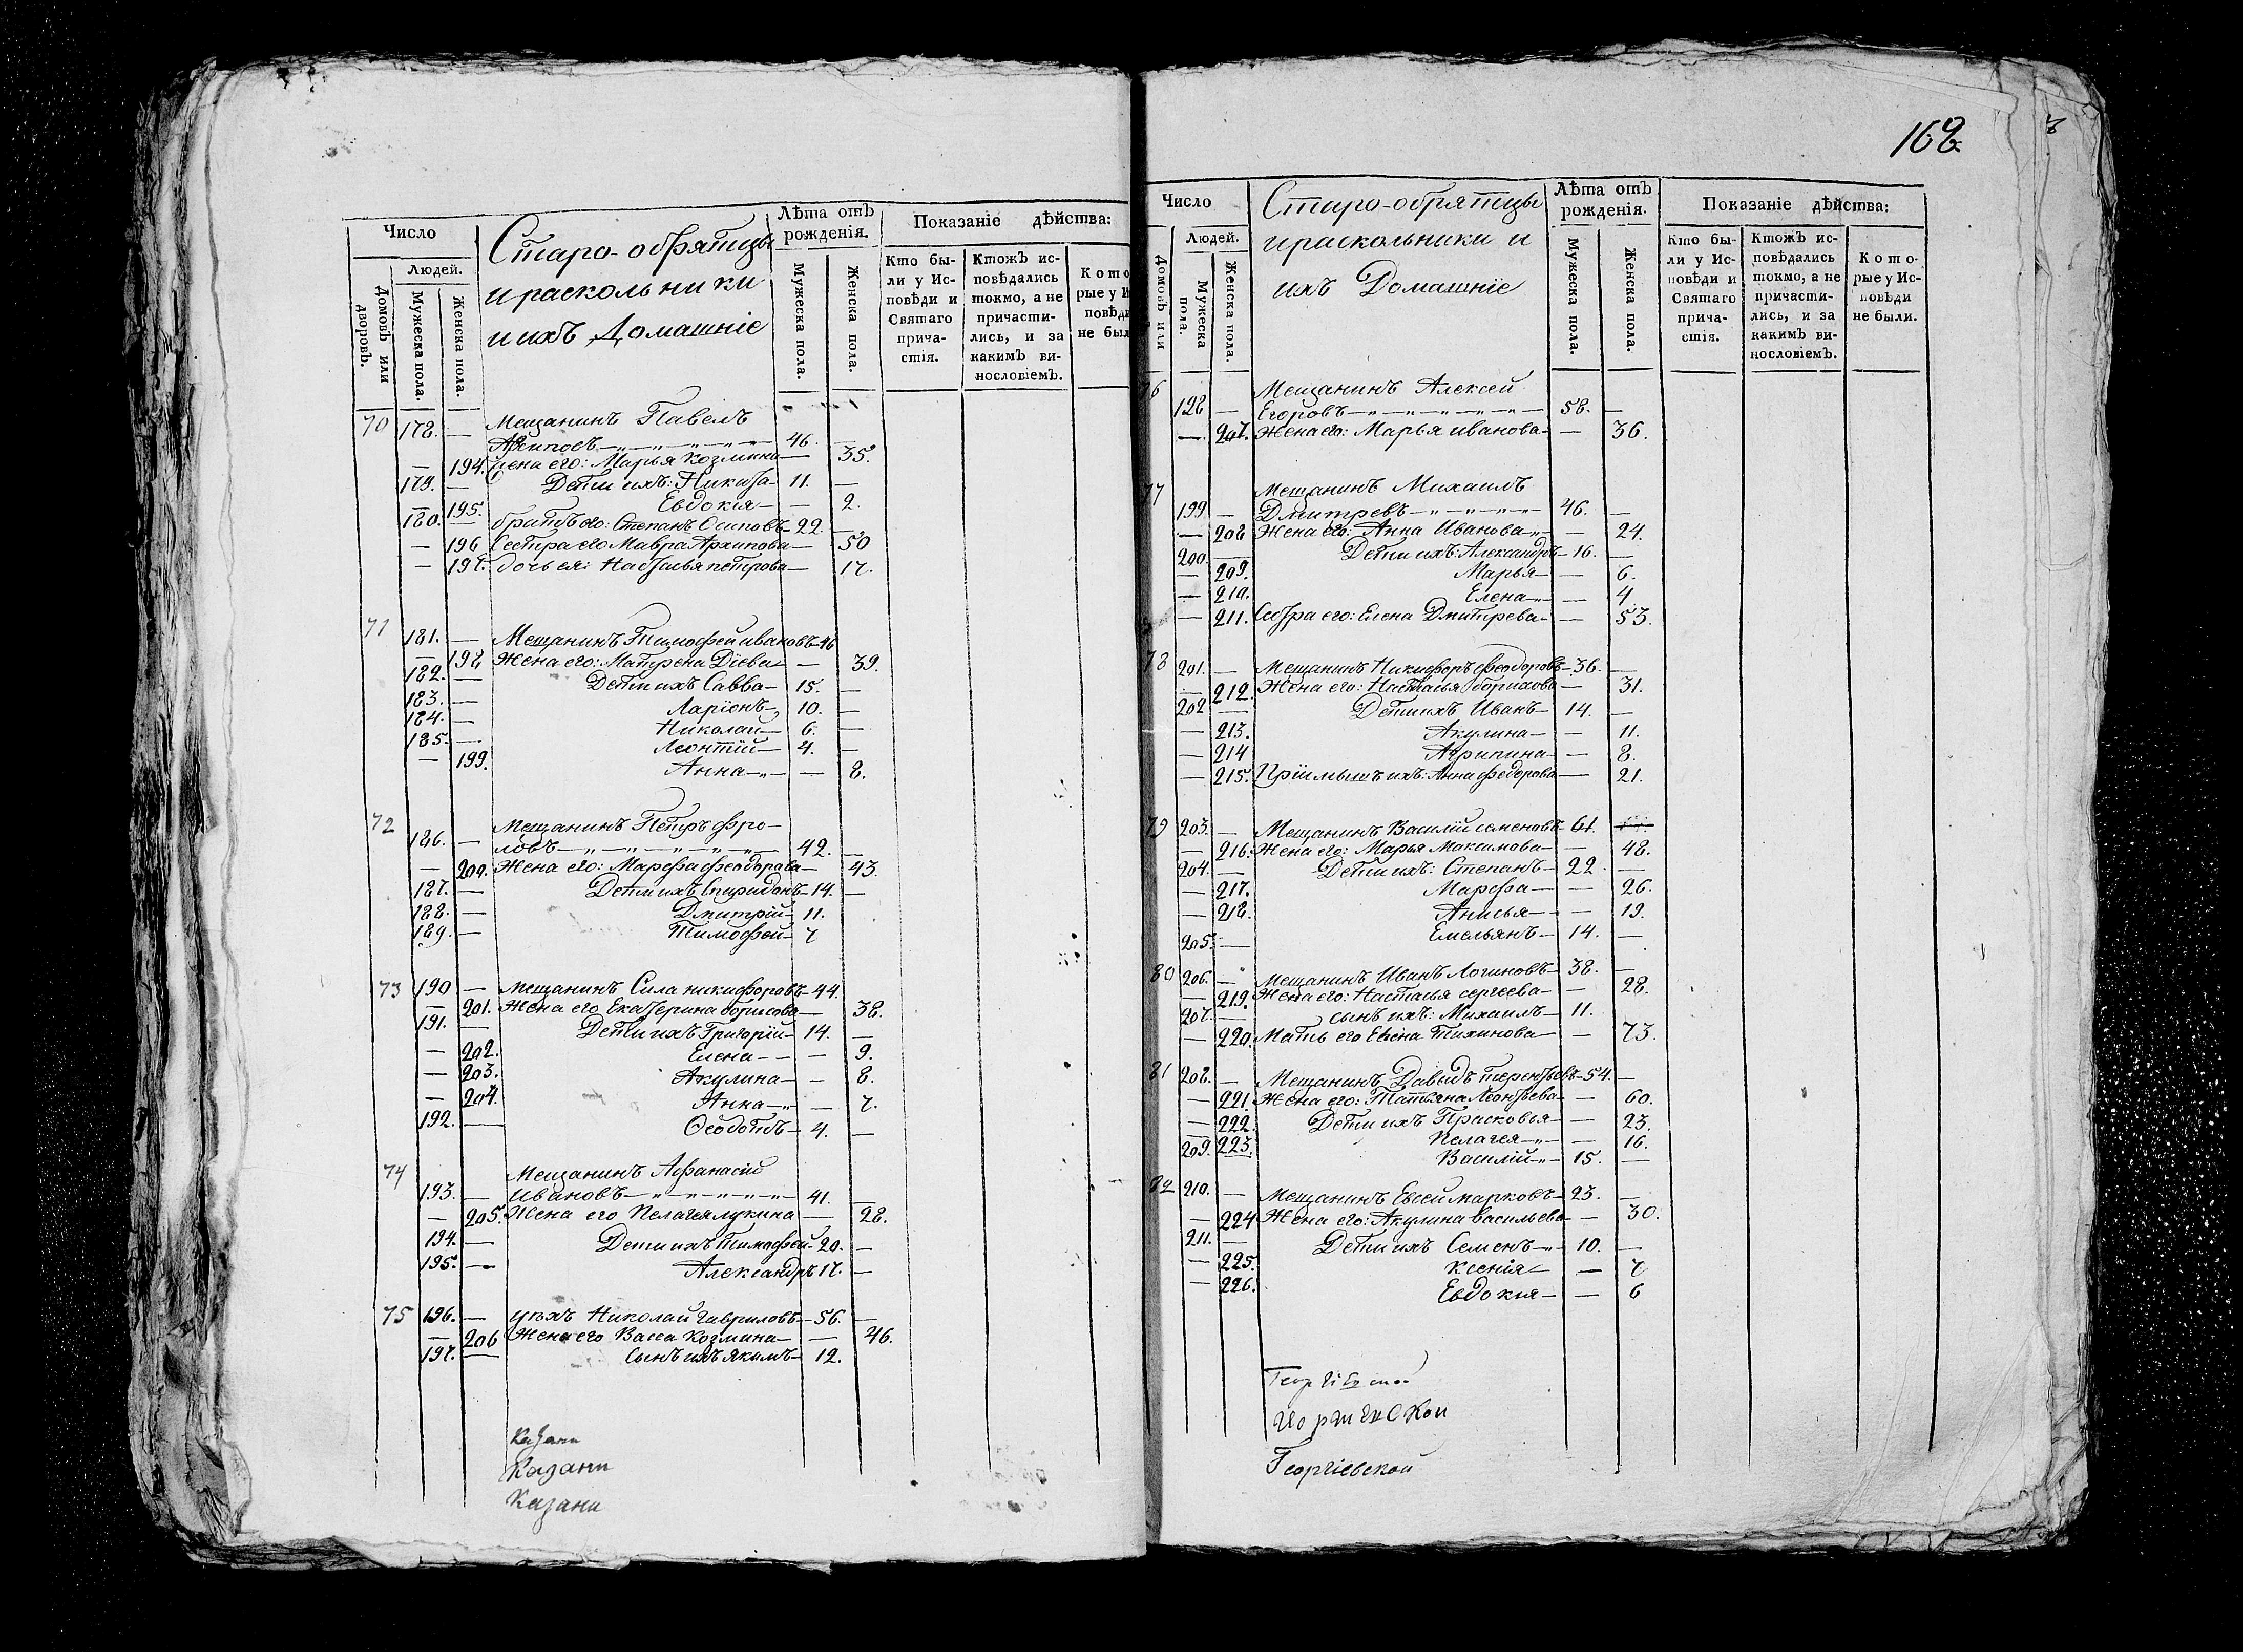 Число
Людей.
Домовъ или дворовъ.
Мужеска пола.
Женска пола.
Старо-обрятцы
и раскольники
и ихъ Домашніе
Лѣта отъ рожденія.
Мужеска пола.
Женска пола.
Показаніе дѣйства:
Кто бы-
ли у Ис-
повѣди и
Святаго
прича-
стія.
Ктожъ ис-
повѣдались
токмо, а не
причасти-
лись, и за
какимъ ви-
нословіемъ.
Кото
рые у И
повѣди
не был
70 178. — Мещанинъ Павелъ
Архиповъ 46. —
— 194. Жена его: Марья Козмина — 35.
179. — Дети ихъ: Никита 11. —
— 195. Евдокія — 2.
180. — братъ его: Степанъ Осиповъ 22. —
— 196 Сестра его Мавра Архипова — 50
— 197. дочь ея: Наталья петрова — 17.
71 181. — Мещанинъ Тимофей ивановъ 46
— 198 Жена его: Матрена Діева — 39.
182. — Дети ихъ Савва 15. —
183. — Ларіонъ 10. —
184. — Николай 6. —
185. — Леонтій 4. —
— 199. Анна — 8.
72 Мещанинъ Петръ фро-
186. — ловъ 42. —
— 200. Жена его: Марфа феодорова — 43.
187. — Дети ихъ Спиридонъ 14. —
188. — Дмитрій 11.
189. — Тимофей 7
73 190 — Мещанинъ Сила никифоровъ 44.
— 201. Жена его Екатерина борисова — 38.
191. — Дети ихъ Григорій 14. —
— 202. Елена — 9.
— 203. Акулина — 8.
— 204. Анна — 7.
192. — Федотъ 4. —
74 Мещанинъ Афанасій
193. — Ивановъ 41. —
— 205. Жена его Пелагея лукина — 28.
194. — Дети ихъ Тимофей 20. —
195. — Александръ 17. —
75 196. — цехъ Николай Гавриловъ 56. —
— 206 Жена его Васса Козмина — 46.
197. — сынъ ихъ Якимъ 12.
Казани
Казани
Казани
168.
Число
Людей.
Домовъ или
Мужеска пола.
Женска пола.
Старо-обрятцы
и раскольники и
ихъ Домашніе
Лѣта отъ рожденія.
Мужеска пола.
Женска пола.
Показаніе дѣйства:
Кто бы-
ли у Ис-
повѣди и
Святаго
прича-
стія.
Ктожъ ис-
повѣдались
токмо, а не
причасти-
лись, и за
какимъ ви-
нословіемъ.
Кото-
рые у Ис-
повѣди
не были.
76 Мещанинъ Алексей
198 — Егоровъ 58. —
— 207. Жена его: Марья иванова — 36.
77 Мещанинъ Михаилъ
199 — Дмитревъ 46. —
— 208 Жена его: Анна Иванова — 24.
200. — Дети ихъ: Александръ 16. —
— 209. Марья — 6.
— 210. Елена — 4
— 211. Сестра его: Елена Дмитрева — 53.
78 201. — Мещанинъ Никифоръ феодоровъ 36. —
— 212. Жена его: Наталья борисова — 31.
202 — Дети ихъ Иванъ 14. —
— 213. Акулина — 11.
— 214 Агрипина — 8.
— 215. Пріимышъ ихъ: Анна федорова — 21.
79 203. — Мещанинъ Василій семеновъ 61.
— 216. Жена его: Марья Максимова — 48.
204. — Дети ихъ: Степанъ 22. —
— 217. Марфа — 26.
— 218. Анисья — 19.
205. — Емельянъ 14. —
80 206. — Мещанинъ Иванъ Логиновъ 38. —
— 219. Жена его: Настасья сергеева — 28.
207. — сынъ ихъ: Михаилъ 11.
— 220. Мать его Елена Тихинова — 73.
81 208. — Мещанинъ Давыдъ терентьевъ 54. —
— 221. Жена его: Татьяна Леонтьева — 60.
— 222. Дети ихъ Прасковья — 23.
— 223. Пелагея — 16.
209. — Василій 15. —
82 210. — Мещанинъ Евсей марковъ 23. —
— 224 Жена его: Акулина васильева — 30.
211. — Дети ихъ Семенъ 10. —
— 225. Ксенія — 7
— 226. Евдокия — 6
Георгіевской